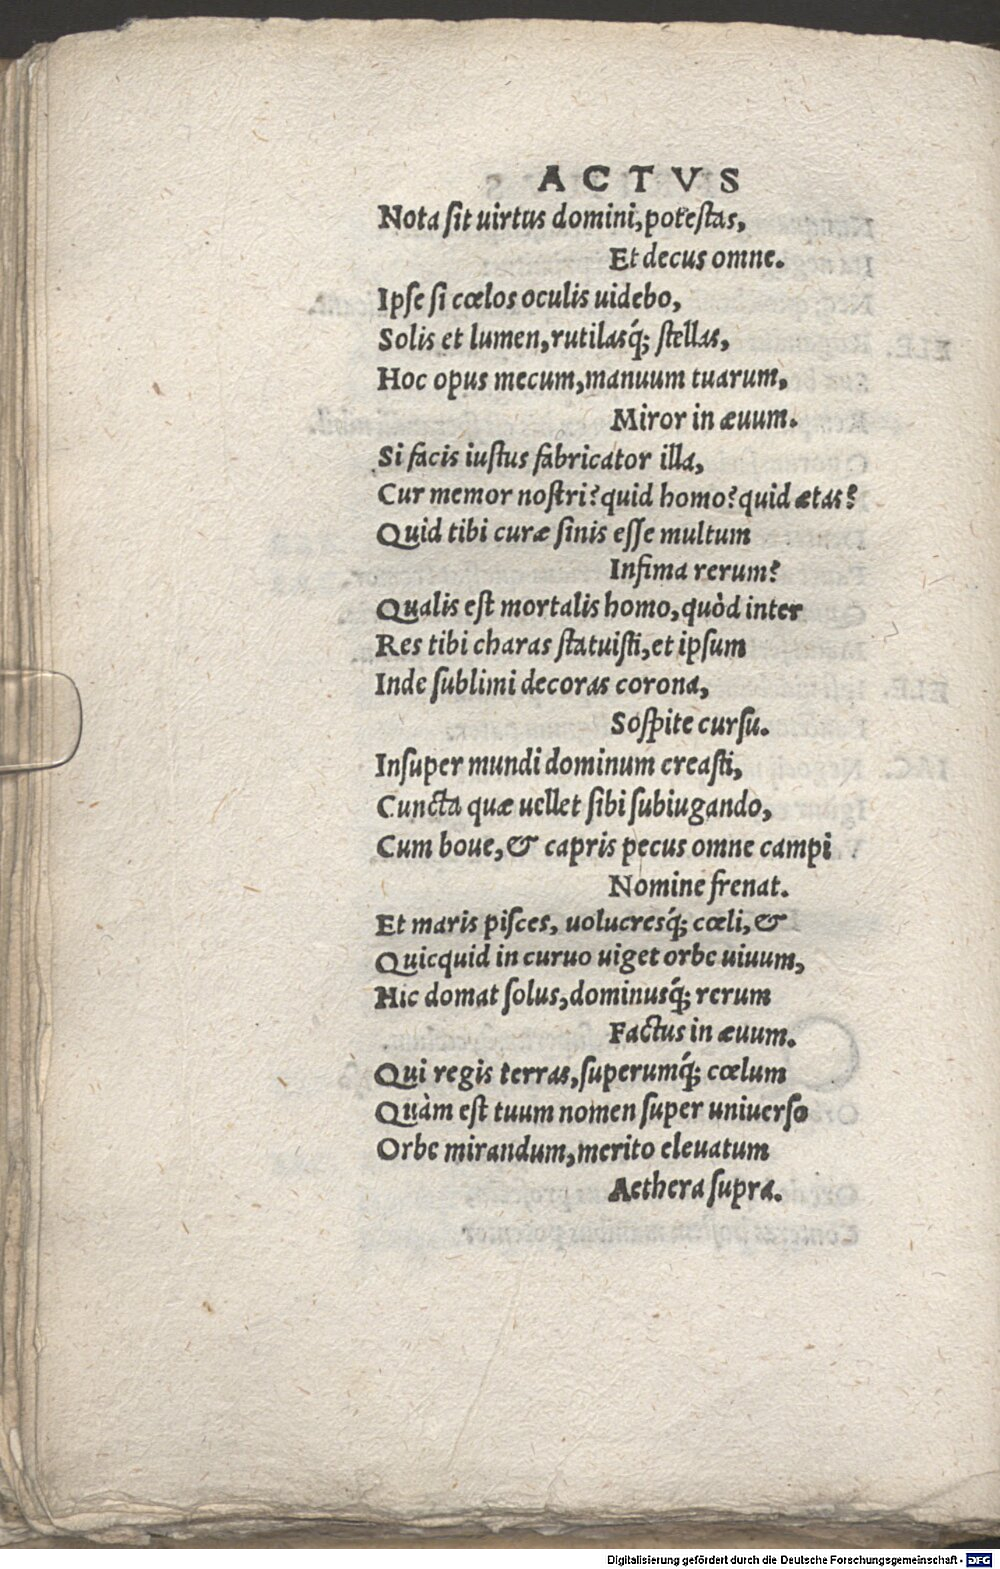 ACTVS
Nota ſit uirtus domini, poteſtas,
Et decus omne.
Ipſe ſi cœlos oculis uidebo,
Solis et lumen, rutilasq́; ſtellas,
Hoc opus mecum, manuum tuarum,
Miror in æuum.
Si facis iuſtus fabricator illa,
Cur memor noſtri? quid homo? quid ætas?
Quid tibi curæ ſinis eſſe multum
Infima rerum?
Qualis eſt mortalis homo, quòd inter
Res tibi charas ſtatuiſti, et ipſum
Inde ſublimi decoras corona,
Soſpite curſu.
Inſuper mundi dominum creaſti,
Cuncta quæ uellet ſibi ſubiugando,
Cum boue, & capris pecus omne campi
Nomine frenat.
Et maris piſces, uolucresq́; cœli, &
Quicquid in curuo uiget orbe uiuum,
Hic domat ſolus, dominusq́; rerum
Factus in æuum.
Qui regis terras, ſuperumq́; cœlum
Quàm eſt tuum nomen ſuper uniuerſo
Orbe mirandum, merito eleuatum
Aethera ſupra.
Digitalisierung gefördert durch die Deutsche Forschungsgemeinschaft - DFG